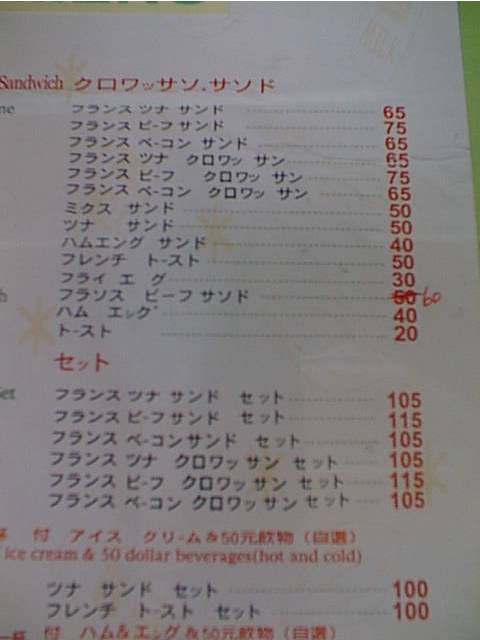 Sandwich クロワッサソ.サソド
フランス ツナ サンド 65
フランス ビーフ サンド 75
フランス ベーコン サンド 65
フランス ツナ クロワッ サン 65
フランス ビーフ クロワッ サン 75
フランス ベーコン クロワッ サン 65
ミクス サンド 50
ツナ サンド 50
ハムエング サンド 40
フレンチ トースト 50
フライ エ グ 30
フラソス ビーフ サソド 50 60
ハム エッグ 40
トースト 20
セット
フランス ツナ サンド セット 105
フランス ビーフ サンド セット 115
フランス ベーコンサンド セット 105
フランス ツナ クロワッ サン セット 105
フランス ビーフ クロワッ サン セット 115
フランス ベーコン クロワッ サン セット 105
付 アイス クリーム&50元飲物(自選)
ice cream & 50 dollar beverages(hot and cold)
ツナ サンド セット 100
フレンチ トースト セット 100
付 ハム&エッグ&50元飲物(自選)